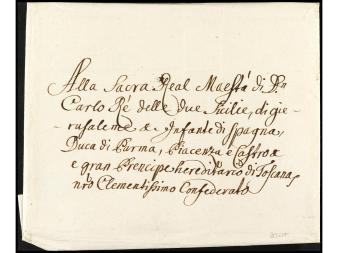 Alla Sacra Real Maestà di Dn
Carlo Ré delle due Sicilie, di gie=
rusaleme &. Infante di Spagna,
Duca di Parma, Piacenza e Castro &
e gran Prencipe hereditario di Toscana,
nro Clementissimo Confederato